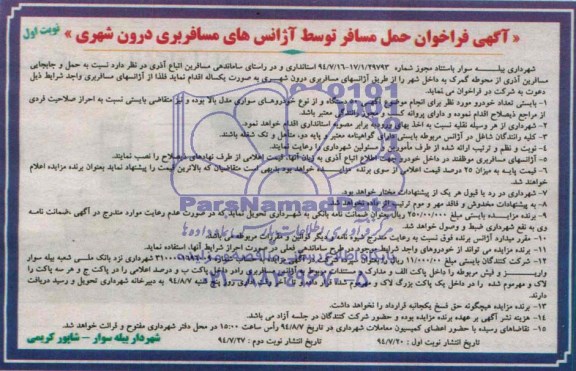 نوبت اول
« آگهی فراخوان حمل مسافر توسط آژانس های مسافربری درون شهری »
شهرداری بیله سوار باستناد مجوز شماره ۹۴/۷/۱۶-۱۷/۱/۲۹۷۹۳ استانداری و در راستای ساماندهی مسافرین اتباع آذری در نظر دارد نسبت به حمل و جابجایی
مسافرین آذری از محوطه گمرک به داخل شهر را از طریق آژانسهای مسافربری درون شهری به صورت یکساله اقدام نماید فلذا از آژانسهای مسافربری واجد شرایط ذیل
دعوت به شرکت در فراخوان می نماید.
۱- بایستی تعداد خودرو مورد نظر برای انجام موضوع آگهی دستگاه و از نوع خودروهای سواری مدل بالا بوده و نیز متقاضی بایستی نسبت به احراز صلاحیت فردی
از مراجع ذیصلاح اقدام نموده و دارای پروانه کسب و مجوز رانندگی معتبر باشد.
۲- شهرداری از هر وسیله نقلیه نسبت به اخذ بهای ورودیه برابر مصوبه استانداری اقدام خواهد نمود.
۳- کلیه رانندگان شاغل در آژانس مربوطه بایستی دارای گواهینامه معتبر و پایه دو، متاهل و تک شغله باشند.
۴- نوبت و نظم و ترتیب ارائه شده از طرف مأمورین و مسئولین شهرداری را رعایت نمایند.
۵- آژانسهای مسافربری موظفند در داخل خودرو جهت اطلاع اتباع آذری به زبان آنها، قیمت اعلامی از طرف نهادهای ذیصلاح را نصب نمایند.
۶- قیمت پایه به میزان ۲۵ درصد قیمت اعلامی از سوی برنده خواهد بود بدیهی است متقاضیان که بالاترین قیمت را پیشنهاد نماید بعنوان برنده مزایده اعلام
خواهند شد.
۷- شهرداری در رد یا قبول هر یک از پیشنهادات مختار خواهد بود.
۸- به پیشنهادات مخدوش و فاقد مهر و موم ترتیب اثر داده نخواهد شد.
۹- برنده مزایده بایستی مبلغ ۲۵۰/۰۰۰/۰۰۰ ریال بعنوان ضمانت نامه بانکی به شهرداری تحویل نماید که در صورت عدم رعایت موارد مندرج در آگهی، ضمانت نامه
وی به نفع شهرداری ضبط و وصول خواهد شد.
۱۰- مقرر میدارد آژانس برنده فوق نسبت به رعایت مندرج شیوه نامه و دیگر قوانین و مقررات مربوطه می باشد.
۱۱- برنده مزایده می تواند از خودروهای واجد شرایط موجود در طرح ساماندهی فعلی در صورت احراز شرایط آنها، استفاده نماید.
۱۲- شرکت کنندگان بایستی مبلغ ۱۱/۰۰۰/۰۰۰ ریال شهرداری نزد بانک ملی شعبه بیله سوار
واریز و فیش مربوطه را داخل پاکت الف و مدارک و مستندات مربوط به آژانس مسافربری را در داخل پاکت ب و درصد اعلامی را در پاکت ج و هر سه پاکت را
لاک و مهرموم شده را در داخل یک پاکت بزرگ لاک و روز شنبه ۹۴/۸/۷ به دبیرخانه شهرداری تحویل و رسید دریافت
دارند.
۱۳- برنده مزایده هیچگونه حق فسخ یکجانبه قرارداد را نخواهد داشت.
۱۴- هزینه نشر آگهی بر عهده برنده مزایده بوده و حضور شرکت کنندگان در جلسه آزاد می باشد.
۱۵- تقاضاهای رسیده با حضور اعضای کمیسیون معاملات شهرداری در تاریخ ۹۴/۸/۷ رأس ساعت ۱۵:۰۰ در محل دفتر شهرداری مفتوح و قرائت خواهد شد.
تاریخ انتشار نوبت اول : ۹۴/۷/۲۰
تاریخ انتشار نوبت دوم : ۹۴/۷/۲۷
شهردار بیله سوار – شاپور کریمی
ParsNamadData